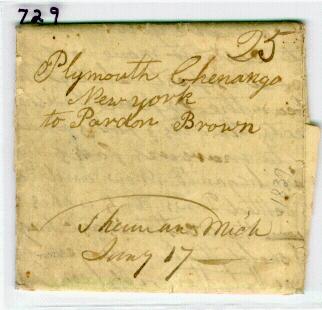 729
25
Plymouth Chenango
New york
to Pardon Brown
1839
Sherman Mich
Jany 17